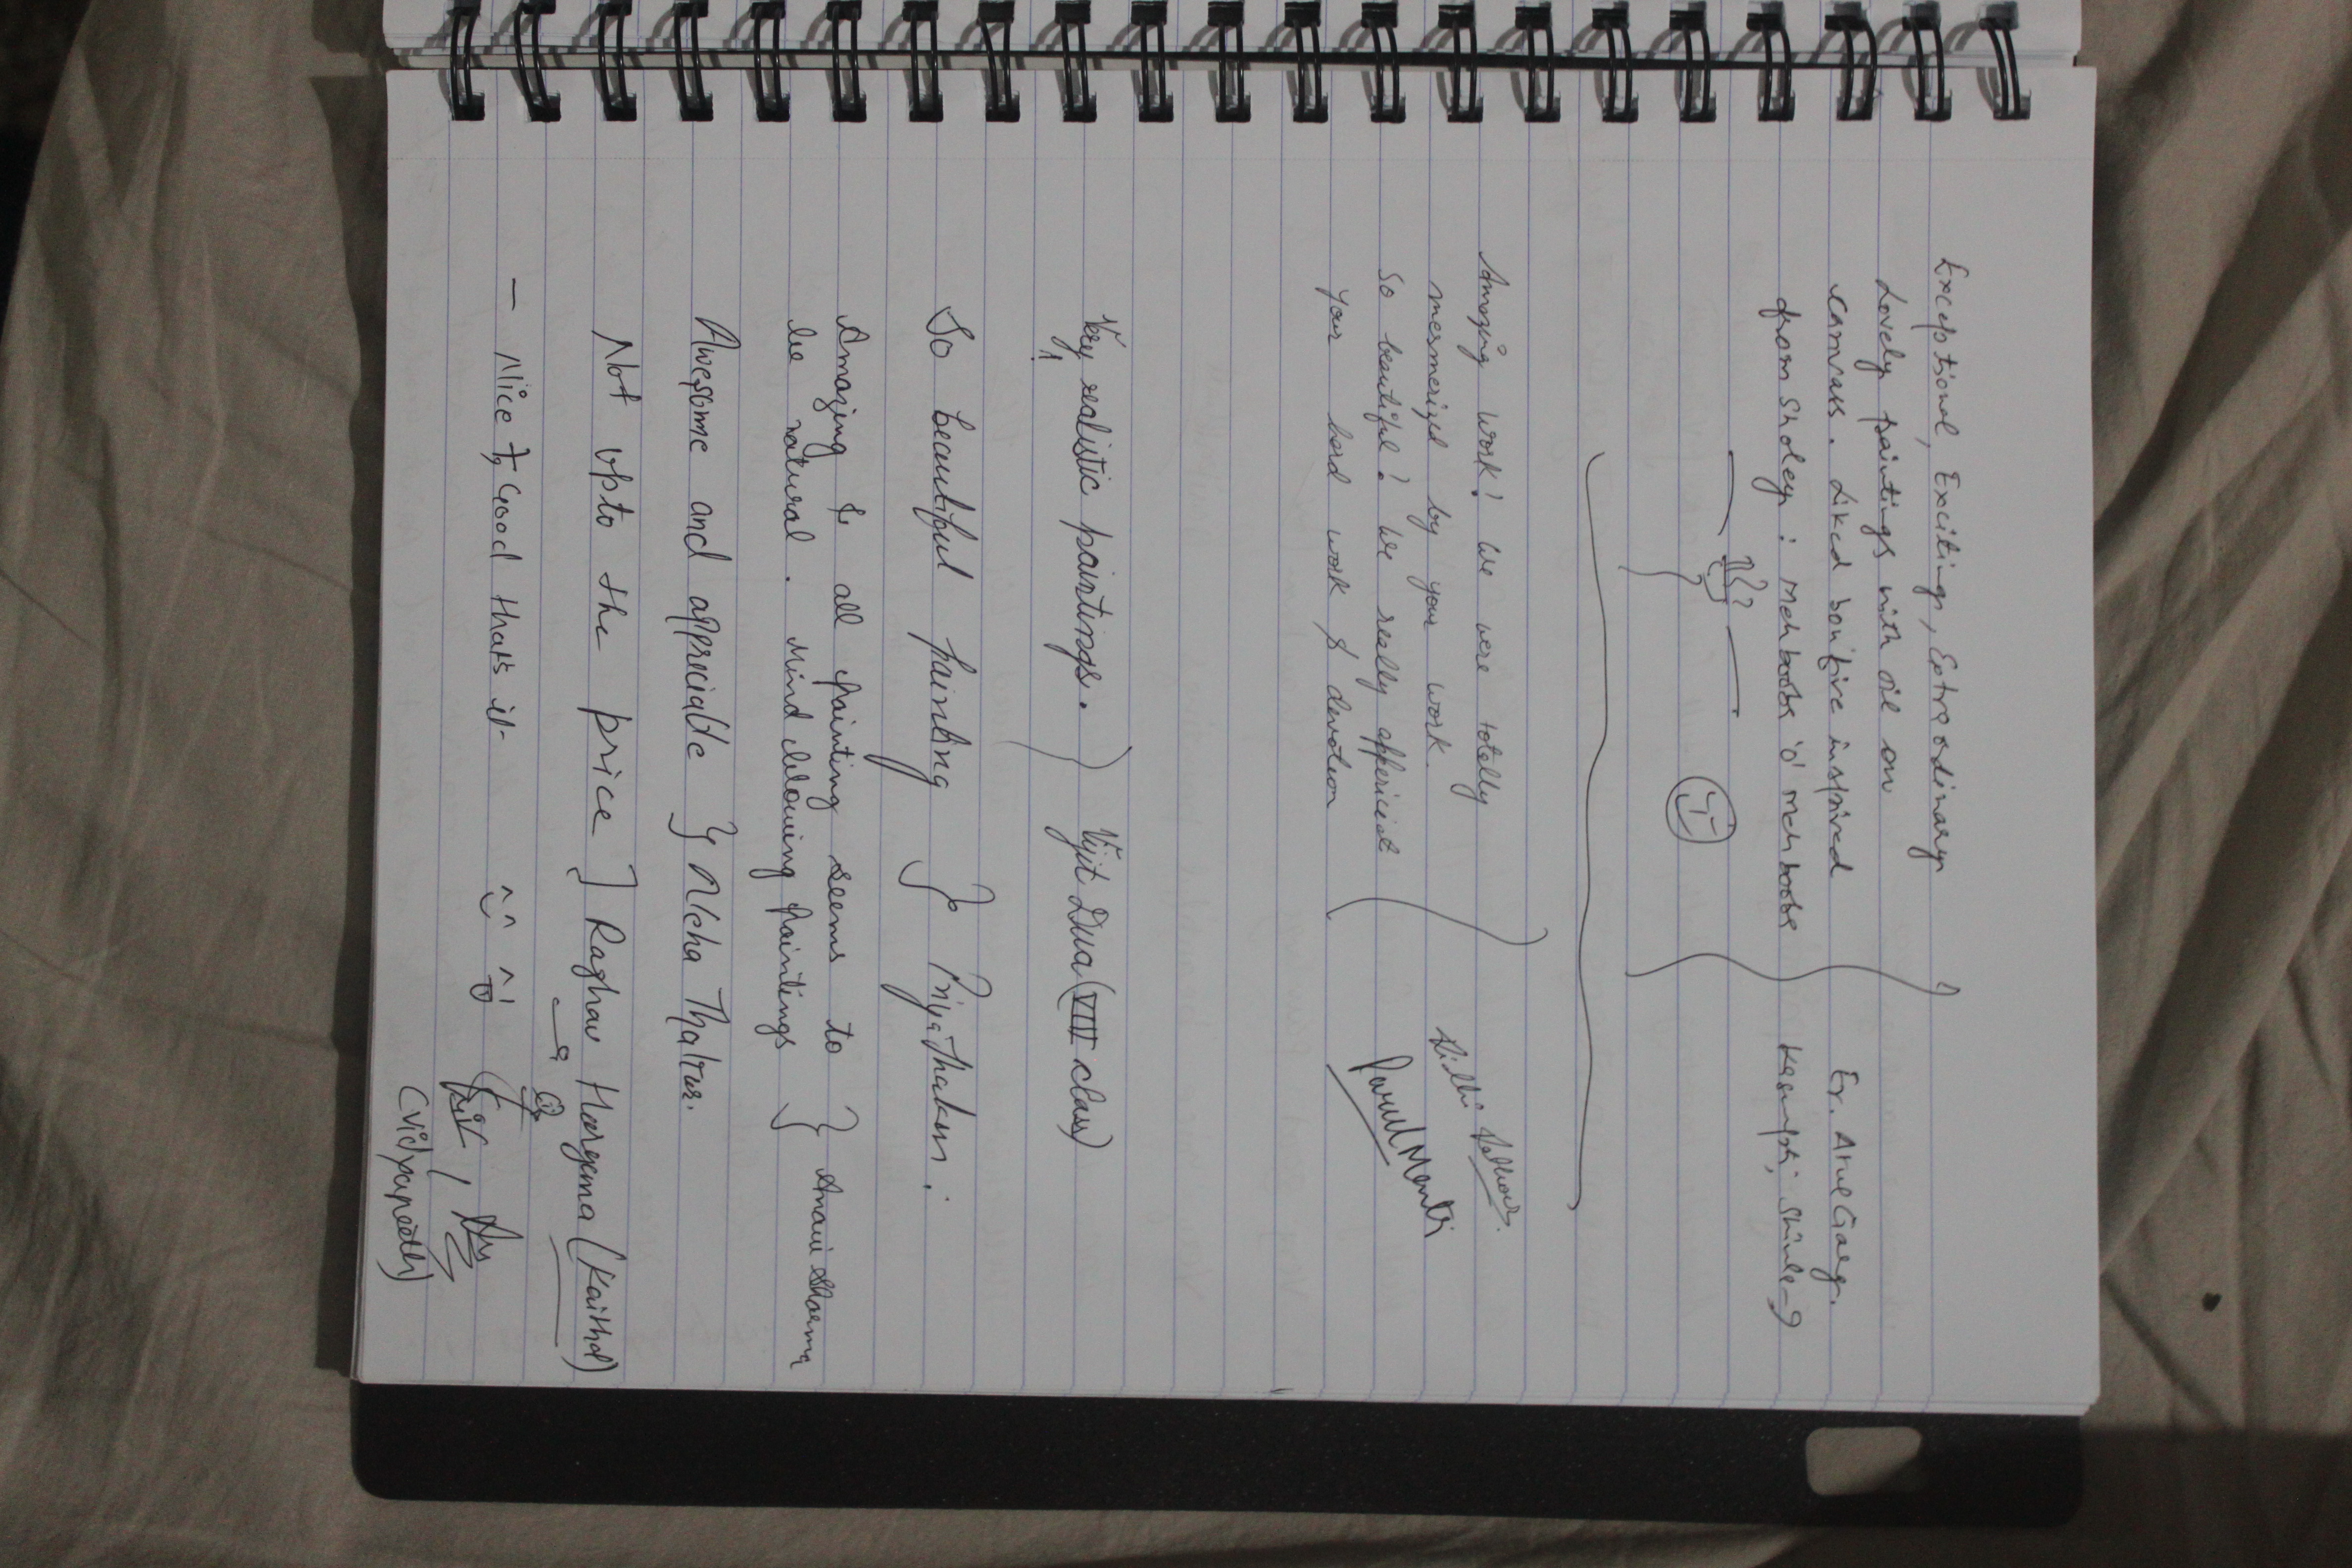 Exceptional, Exciting, Extraodinary
Lovely paintings with oil on
canvas. Liked bonfire inspired
from Sholey : Mehbooba 'o' mehbooba
Er. Atul Garg.
Kasumpti, Shimla-9
Amazing work! We were totally
mesmerized by your work.
So beautiful! We really appericiate
your hard work & devotion
Very realistic paintings. Vijit Dua (VIII class)
So beautiful painting } Priya Thakur.
Amazing & all painting seems to
be natural. Mind blowing paintings } Sharma
Awesome and appreciable } Neha Thakur.
Not upto the price ] Raghav (Kaithal)
- Nice & Good thats it.
(Vidyapeeth)